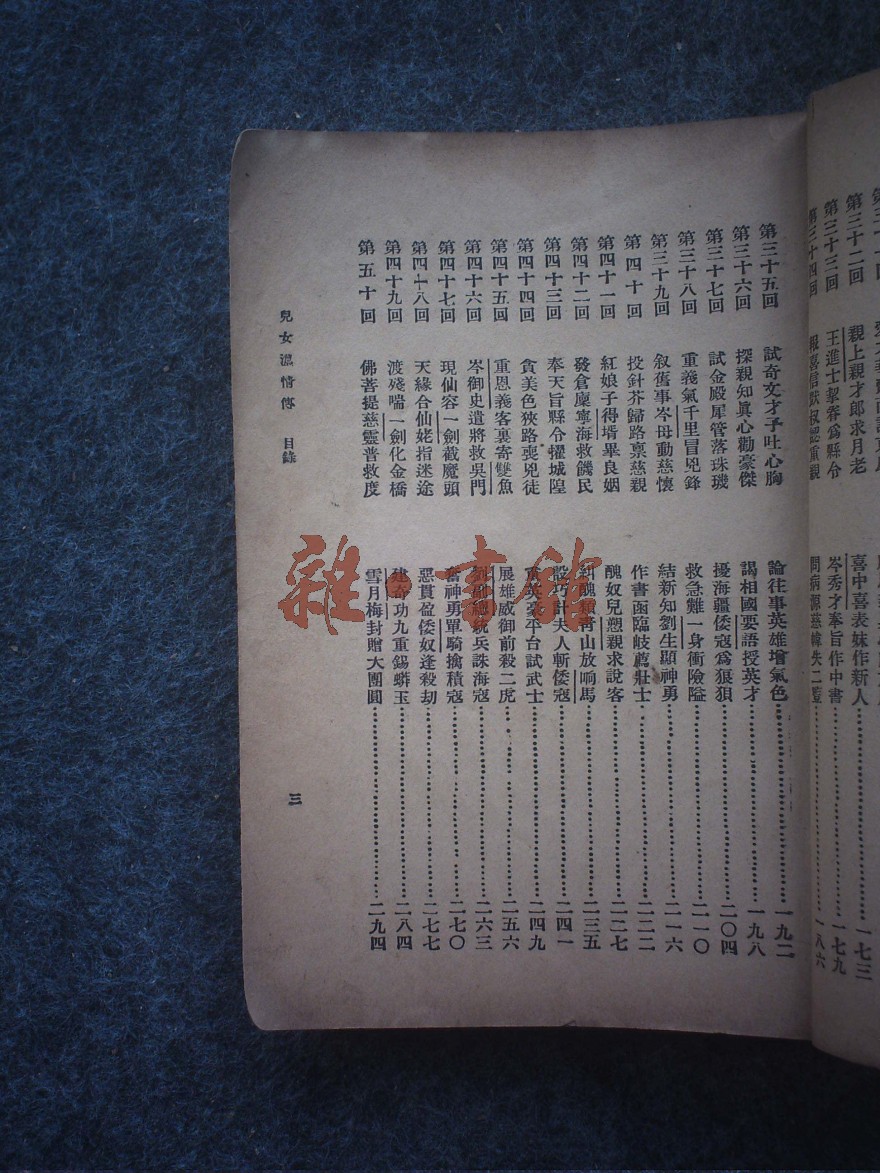 第三十二回　親上親才郎求月老　喜中喜表妹作新人……一七三
第三十三回　王進士挈眷爲縣令　岑秀才奉旨作中書……一七九
第三十四回　報喜信默叔認重親　問病源慈幃失二豎……一八六
第三十五回　試奇文才予吐心胸　論往事英雄增氣色……一九二
第三十六回　探親知眞心勸豪傑　謁相國要語授英才……一九八
第三十七回　試金殿犀管落珠璣　擾海疆倭寇爲狼狽……二〇四
第三十八回　重義氣千里冒兇鋒　救急難一身衝險隘……二一〇
第三十九回　叙舊事岑母動慈懷　結新知劉生顯神勇……二一六
第四十回　投針芥歸路禀慈親　作書函臨岐薦壯士……二二二
第四十一回　紅娘子得壻畢良姻　醜奴兒戀親求說客……二二七
第四十二回　發倉廩寧海救饑民　糾醜類靑山放响馬……二三五
第四十三回　奉天旨縣令擢城隍　設巧計夫人斬倭寇……二四一
第四十四回　貪美色狹路喪兇徒　賞英豪平台試武士……二四九
第四十五回　重恩義客裏寄雙魚　展雄威御前殺二虎……二五六
第四十六回　岑御史遣將救吳門　劉總統兵誅海寇……二六三
第四十七回　現仙容一劍截魔頭　奮神勇單騎擒積寇……二七〇
第四十八回　天緣合仙姥指迷途　惡貫盈倭奴逢殺劫……二七七
第四十九回　渡殘喘一劍化金橋　建奇功九重錫蟒玉……二八四
第五十回　佛菩提慈靈普救度　雪月梅封贈大團圓……二九四
兒女濃情傳　目錄
三
雜·書館